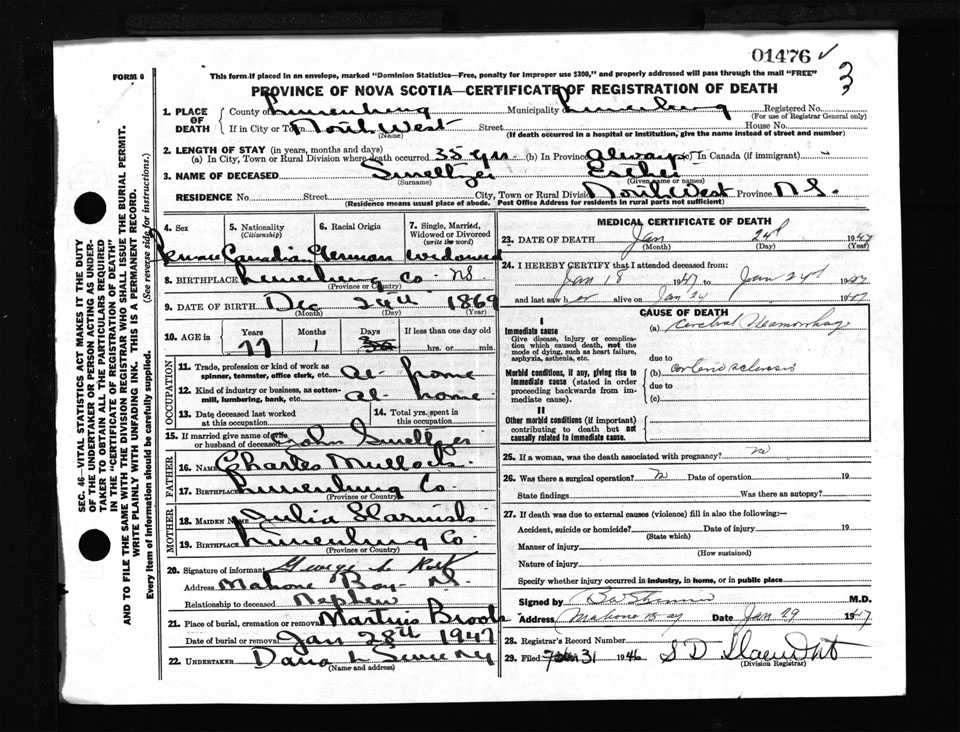 01476 ✓
3
FORM 6
This form if placed in an envelope, marked "Dominion Statistics—Free, penalty for improper use $300," and properly addressed will pass through the mail "FREE"
PROVINCE OF NOVA SCOTIA—CERTIFICATE OF REGISTRATION OF DEATH
SEC. 46—VITAL STATISTICS ACT MAKES IT THE DUTY
OF THE UNDERTAKER OR PERSON ACTING AS UNDER-
TAKER TO OBTAIN ALL THE PARTICULARS REQUIRED
IN THE "CERTIFICATE OF REGISTRATION OF DEATH"
AND TO FILE THE SAME WITH THE DIVISION REGISTRAR WHO SHALL ISSUE THE BURIAL PERMIT.
WRITE PLAINLY WITH UNFADING INK. THIS IS A PERMANENT RECORD.
Every item of information should be carefully supplied. (See reverse side for instructions.)
1. PLACE OF DEATH County of Lunenburg Municipality Lunenburg Registered No.
(For use of Registrar General only)
If in City or Town North West Street House No.
(Name) (If death occurred in a hospital or institution, give the name instead of street and number)
2. LENGTH OF STAY (in years, months and days)
(a) In City, Town or Rural Division where death occurred 35 yrs. (b) In Province always (c) In Canada (if immigrant)
3. NAME OF DECEASED Smeltzer Esther
(Surname) (Given name or names)
RESIDENCE No. Street City, Town or Rural Division North West Province N.S.
(Residence means usual place of abode. Post Office Address for residents in rural parts not sufficient)
4. Sex 5. Nationality (Citizenship) 6. Racial Origin 7. Single, Married, Widowed or Divorced (write the word)
Female Canadian German Widowed
8. BIRTHPLACE Lunenburg Co. NS
(Province or Country)
9. DATE OF BIRTH Dec 24th 1869
(Month) (Day) (Year)
10. AGE in Years Months Days If less than one day old
77 1 hrs. or min.
OCCUPATION
11. Trade, profession or kind of work as spinner, teamster, office clerk, etc. At home
12. Kind of industry or business, as cotton-mill, lumbering, bank, etc. At home
13. Date deceased last worked at this occupation 14. Total yrs. spent in this occupation
15. If married give name of wife or husband of deceased John Smeltzer
FATHER
16. Name Charles
17. Birthplace Lunenburg Co.
(Province or Country)
MOTHER
18. MAIDEN Name Julia
19. BIRTHPLACE Lunenburg Co
(Province or Country)
20. Signature of informant George L
Address Mahone Bay N.S.
Relationship to deceased Nephew
21. Place of burial, cremation or removal Martins Brook
Date of burial or removal Jan 28th 1947
22. UNDERTAKER Dana L Sweeny
(Name and address)
MEDICAL CERTIFICATE OF DEATH
23. DATE OF DEATH Jan 24th 1947
(Month) (Day) (Year)
24. I HEREBY CERTIFY that I attended deceased from:
Jan 18 1947 to Jan 24th 1947
and last saw her alive on Jan 24 1947
CAUSE OF DEATH
I
Immediate cause (a) Cerebral Heamorrhag
Give disease, injury or complication which caused death, not the mode of dying, such as heart failure, asphyxia, asthenia, etc.
due to
Morbid conditions, if any, giving rise to immediate cause (stated in order proceeding backwards from immediate cause). (b) arterio sclerosis
due to
(c)
II
Other morbid conditions (if important) contributing to death but not causally related to immediate cause.
25. If a woman, was the death associated with pregnancy? no
26. Was there a surgical operation? no Date of operation 19
State findings Was there an autopsy?
27. If death was due to external causes (violence) fill in also the following:—
Accident, suicide or homicide? Date of injury 19
(State which)
Manner of injury
(How sustained)
Nature of injury
Specify whether injury occurred in industry, in home, or in public place
Signed by M.D.
Address Mahone Bay Date Jan 29 1947
28. Registrar's Record Number
29. Filed 31 1946 S D
(Division Registrar)